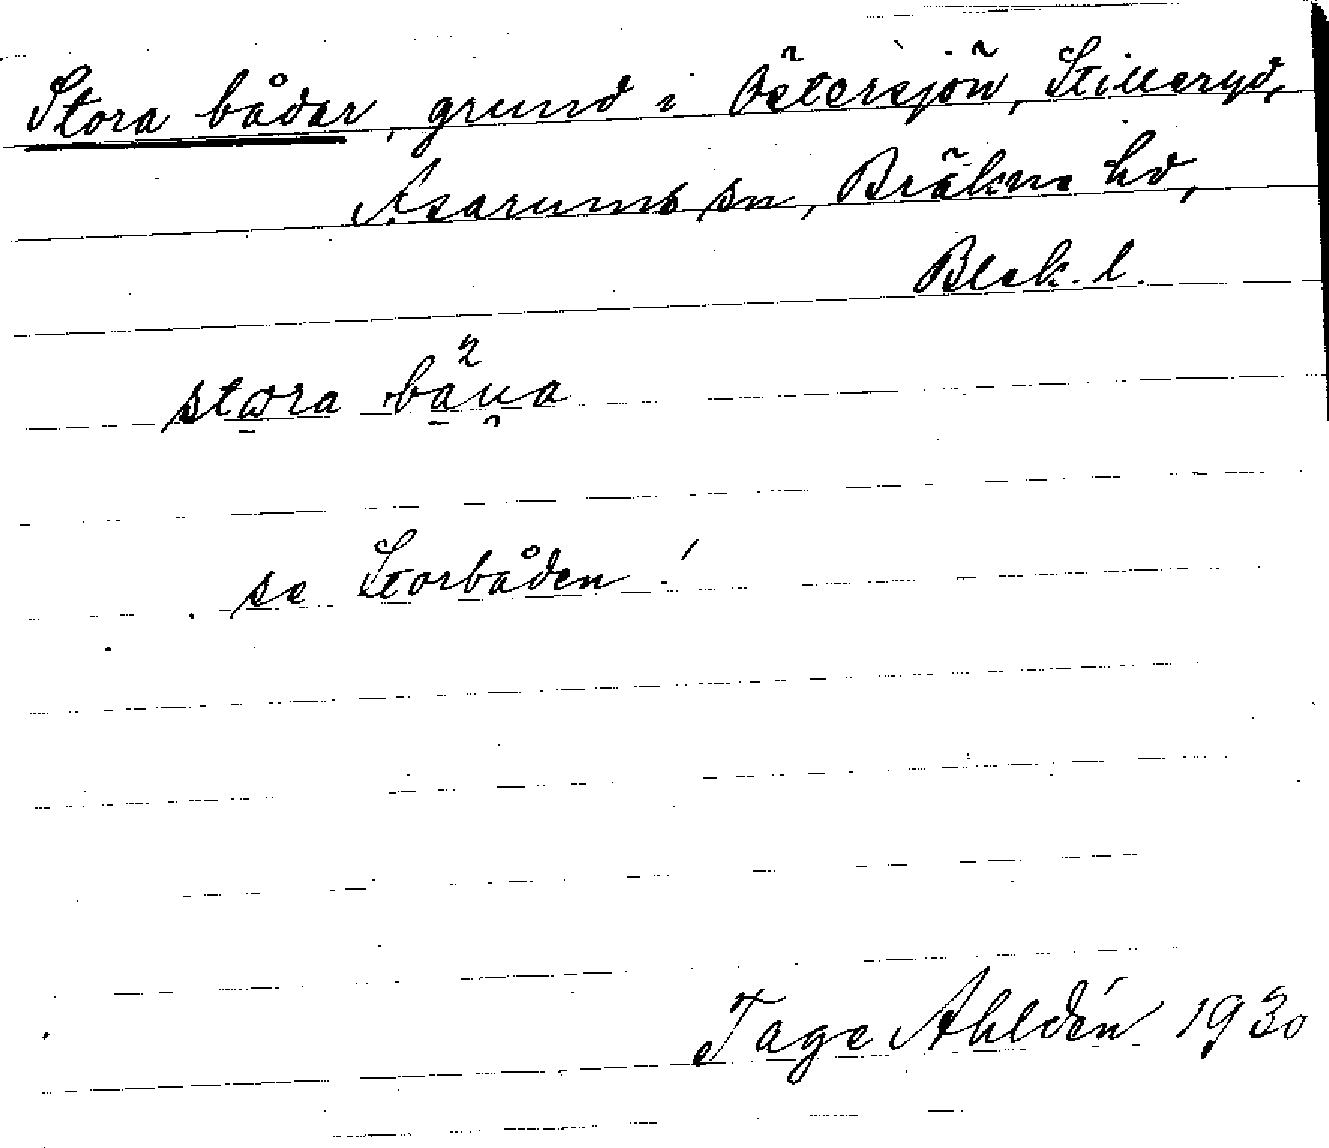 Stora bådar, grund i Östersjön, Stilleryd,
Asarums sn, Bräkne hd,
Blek. l.
stora
se Storbåden!
Tage Ahldén 1930